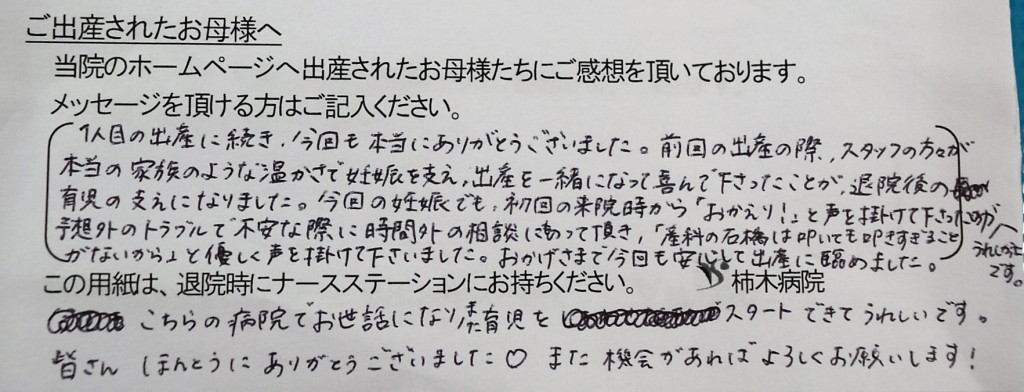 ご出産されたお母様へ
当院のホームページへ出産されたお母様たちにご感想を頂いております。
メッセージを頂ける方はご記入ください。
1人目の出産に続き、今回も本当にありがとうございました。前回の出産の際、スタッフの方々が
本当の家族のような温かさで妊娠を支え、出産を一緒になって喜んで下さったことが、退院後の
育児の支えになりました。今回の妊娠でも、初回の来院時から「おかえり!」と声を掛けて下さったのが
うれしかったです。
予想外のトラブルで不安な際に時間外の相談にのって頂き、「産科の石橋は叩いても叩きすぎること
がないから」と優しく声を掛けて下さいました。おかげさまで今回も安心して出産に臨めました。
この用紙は、退院時にナースステーションにお持ちください。 柿木病院
こちらの病院でお世話になり、また育児をスタートできてうれしいです。
皆さん ほんとうにありがとうございました♡ また機会があればよろしくお願いします!